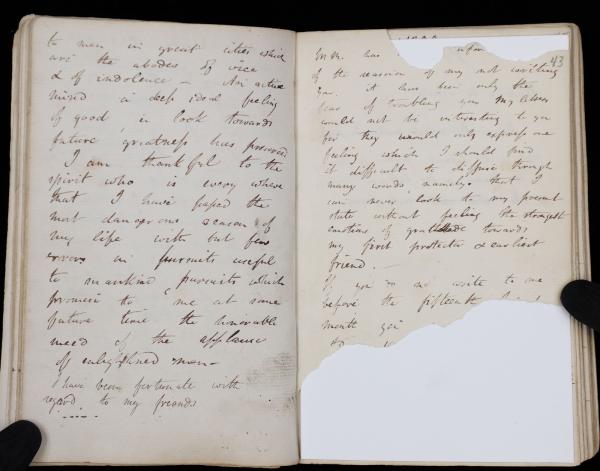 to men in great cities which
are the abodes of vice
& of indolence — An active
mind a deep ideal feeling
of good, a look towards
future greatness has preserved
I am thankful to the
spirit who is every where
that I have passed the
most dangerous season of
my life with but few
errors in pursuits useful
to mankind, pursuits which
promise to me at some
future time the honorable
meed of the applause
of enlightened men—
I have been fortunate with
regard to my friends
43
has
of the reason of my not writing
it has been only the
fear of troubling you My letters
would not be interesting to you
for they would only express one
feeling which I should find
it difficult to diffuse through
many words, namely that I
can never look to my present
state without feeling the strongest
emotions of gratitude towards
my first protector & earliest
friend. —
If you do not write to me
before the fifteenth
month